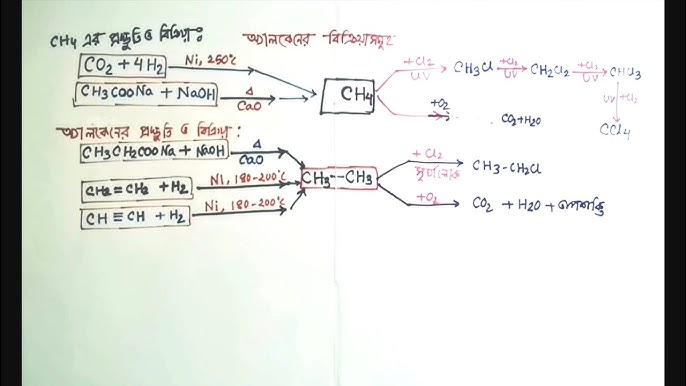 CH4 এর প্রস্তুতি ও বিক্রিয়া: অ্যালকেনের বিক্রিয়াসমূহ
CO2 + 4H2 Ni, 250°C
CH3COONa + NaOH Δ CaO
CH4
+Cl2 UV CH3Cl +Cl2 UV CH2Cl2 +Cl2 UV CHCl3
UV +Cl2
CCl4
+O2 CO2+H2O
অ্যালকেনের প্রস্তুতি ও বিক্রিয়া:
CH3CH2COONa + NaOH Δ CaO
CH2=CH2 + H2 Ni, 180-200°C
CH≡CH + H2 Ni, 180-200°C
CH3--CH3
+Cl2 সূর্যালোক CH3-CH2Cl
+O2 CO2 + H2O + তাপশক্তি